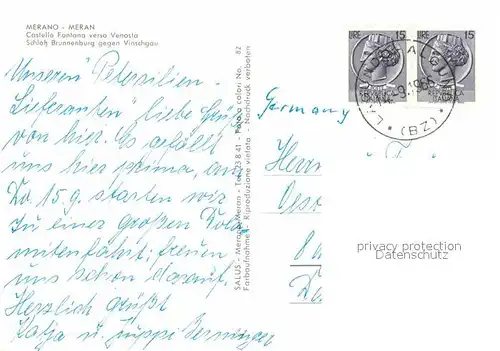 MERANO - MERAN
Castello Fontana verso Venosta
Schloß Brunnenburg gegen Vinschgau
Unseren Petersilien-
Lieferanten liebe Grüße
von hier. Es gefällt
uns hier prima, am
Do 15.9. starten wir
zu einer großen Dolo
mitenfahrt; freuen
uns schon darauf.
Herzlich grüßt
Katja u. Juppi
SALUS - Merano-Meran - Tel. 23 8 41 - Foto a colori No. 82
Farbaufnahme - Riproduzione vietata - Nachdruck verboten
LIRE 15
LIRE 15
9.1966
(BZ)
Germany
Herrn
privacy protection
Datenschutz